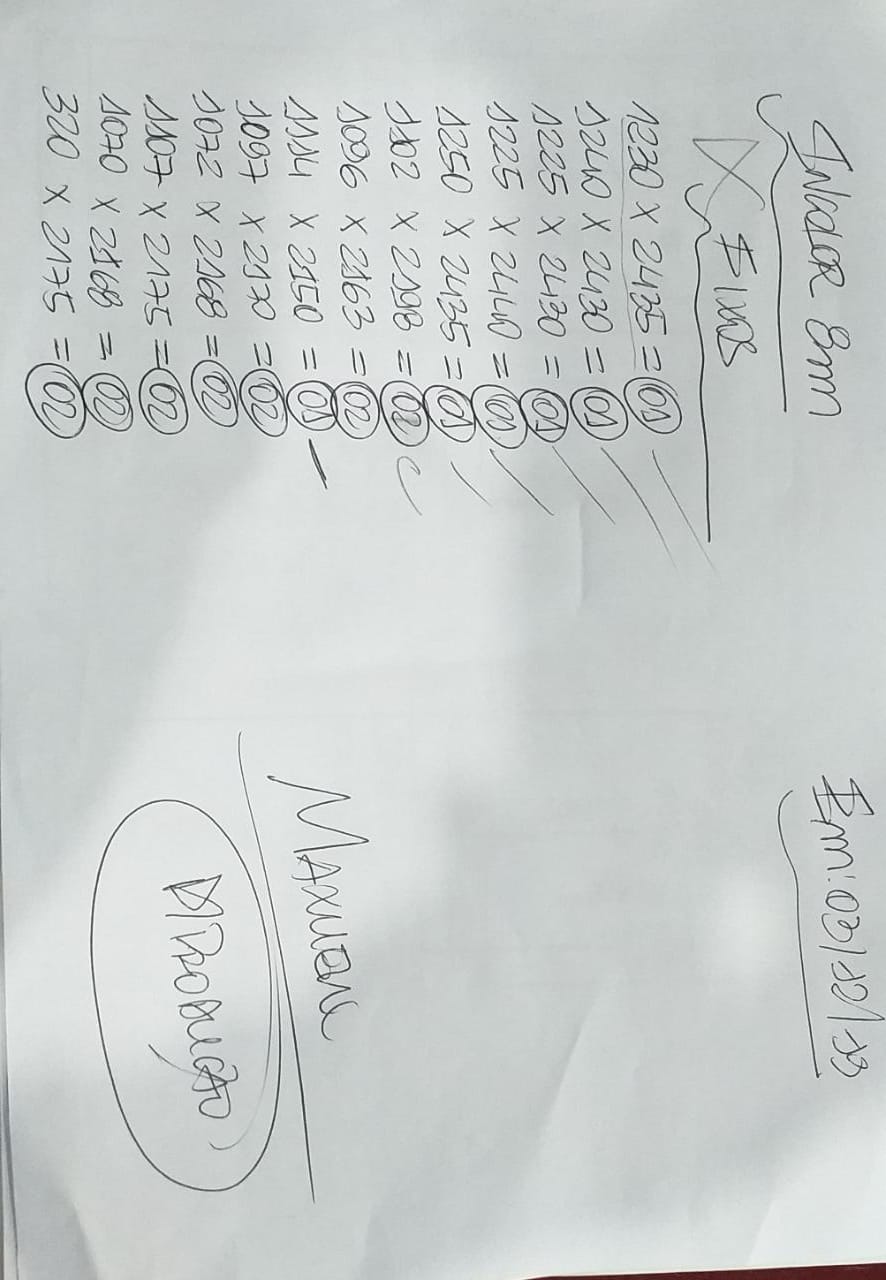 Incolor 8mm
Em: 03/22/22
Fixos
1230 x 2435 = 01
1240 x 2430 = 01
1225 x 2430 = 01
1225 x 2440 = 01
1250 x 2435 = 01
1102 x 2198 = 02
1096 x 2163 = 02
1114 x 2150 = 01
1097 x 2170 = 02
1072 x 2168 = 02
1107 x 2175 = 02
1070 x 2168 = 02
320 x 2175 = 02
P/Produção